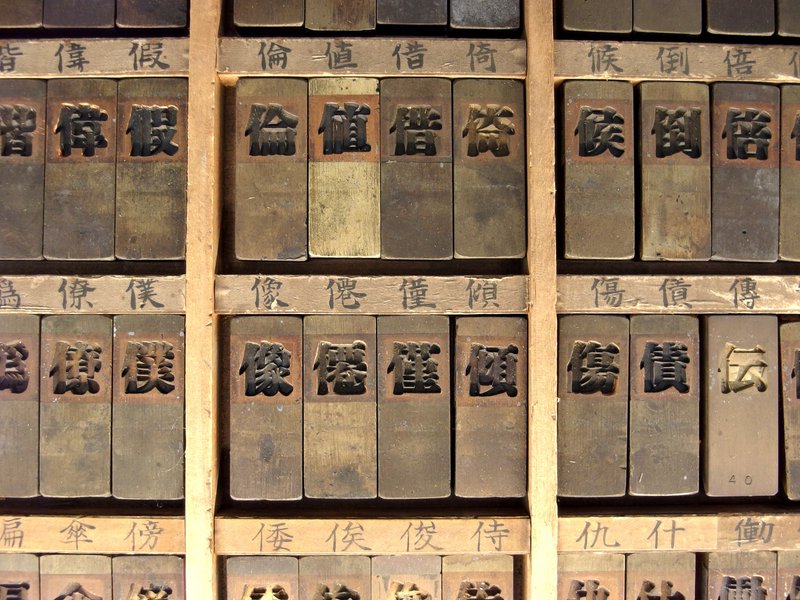 偉 假
倫 値 借 倚
候 倒 倍
偕 偉 假
倫 値 偕 倚
候 倒 倍
僞 僚 僕
像 僊 僅 傾
傷 債 傳
僞 僚 僕
像 僊 僅 傾
傷 債 伝
40
扁 傘 傍
倭 俟 俊 侍
仇 什 働